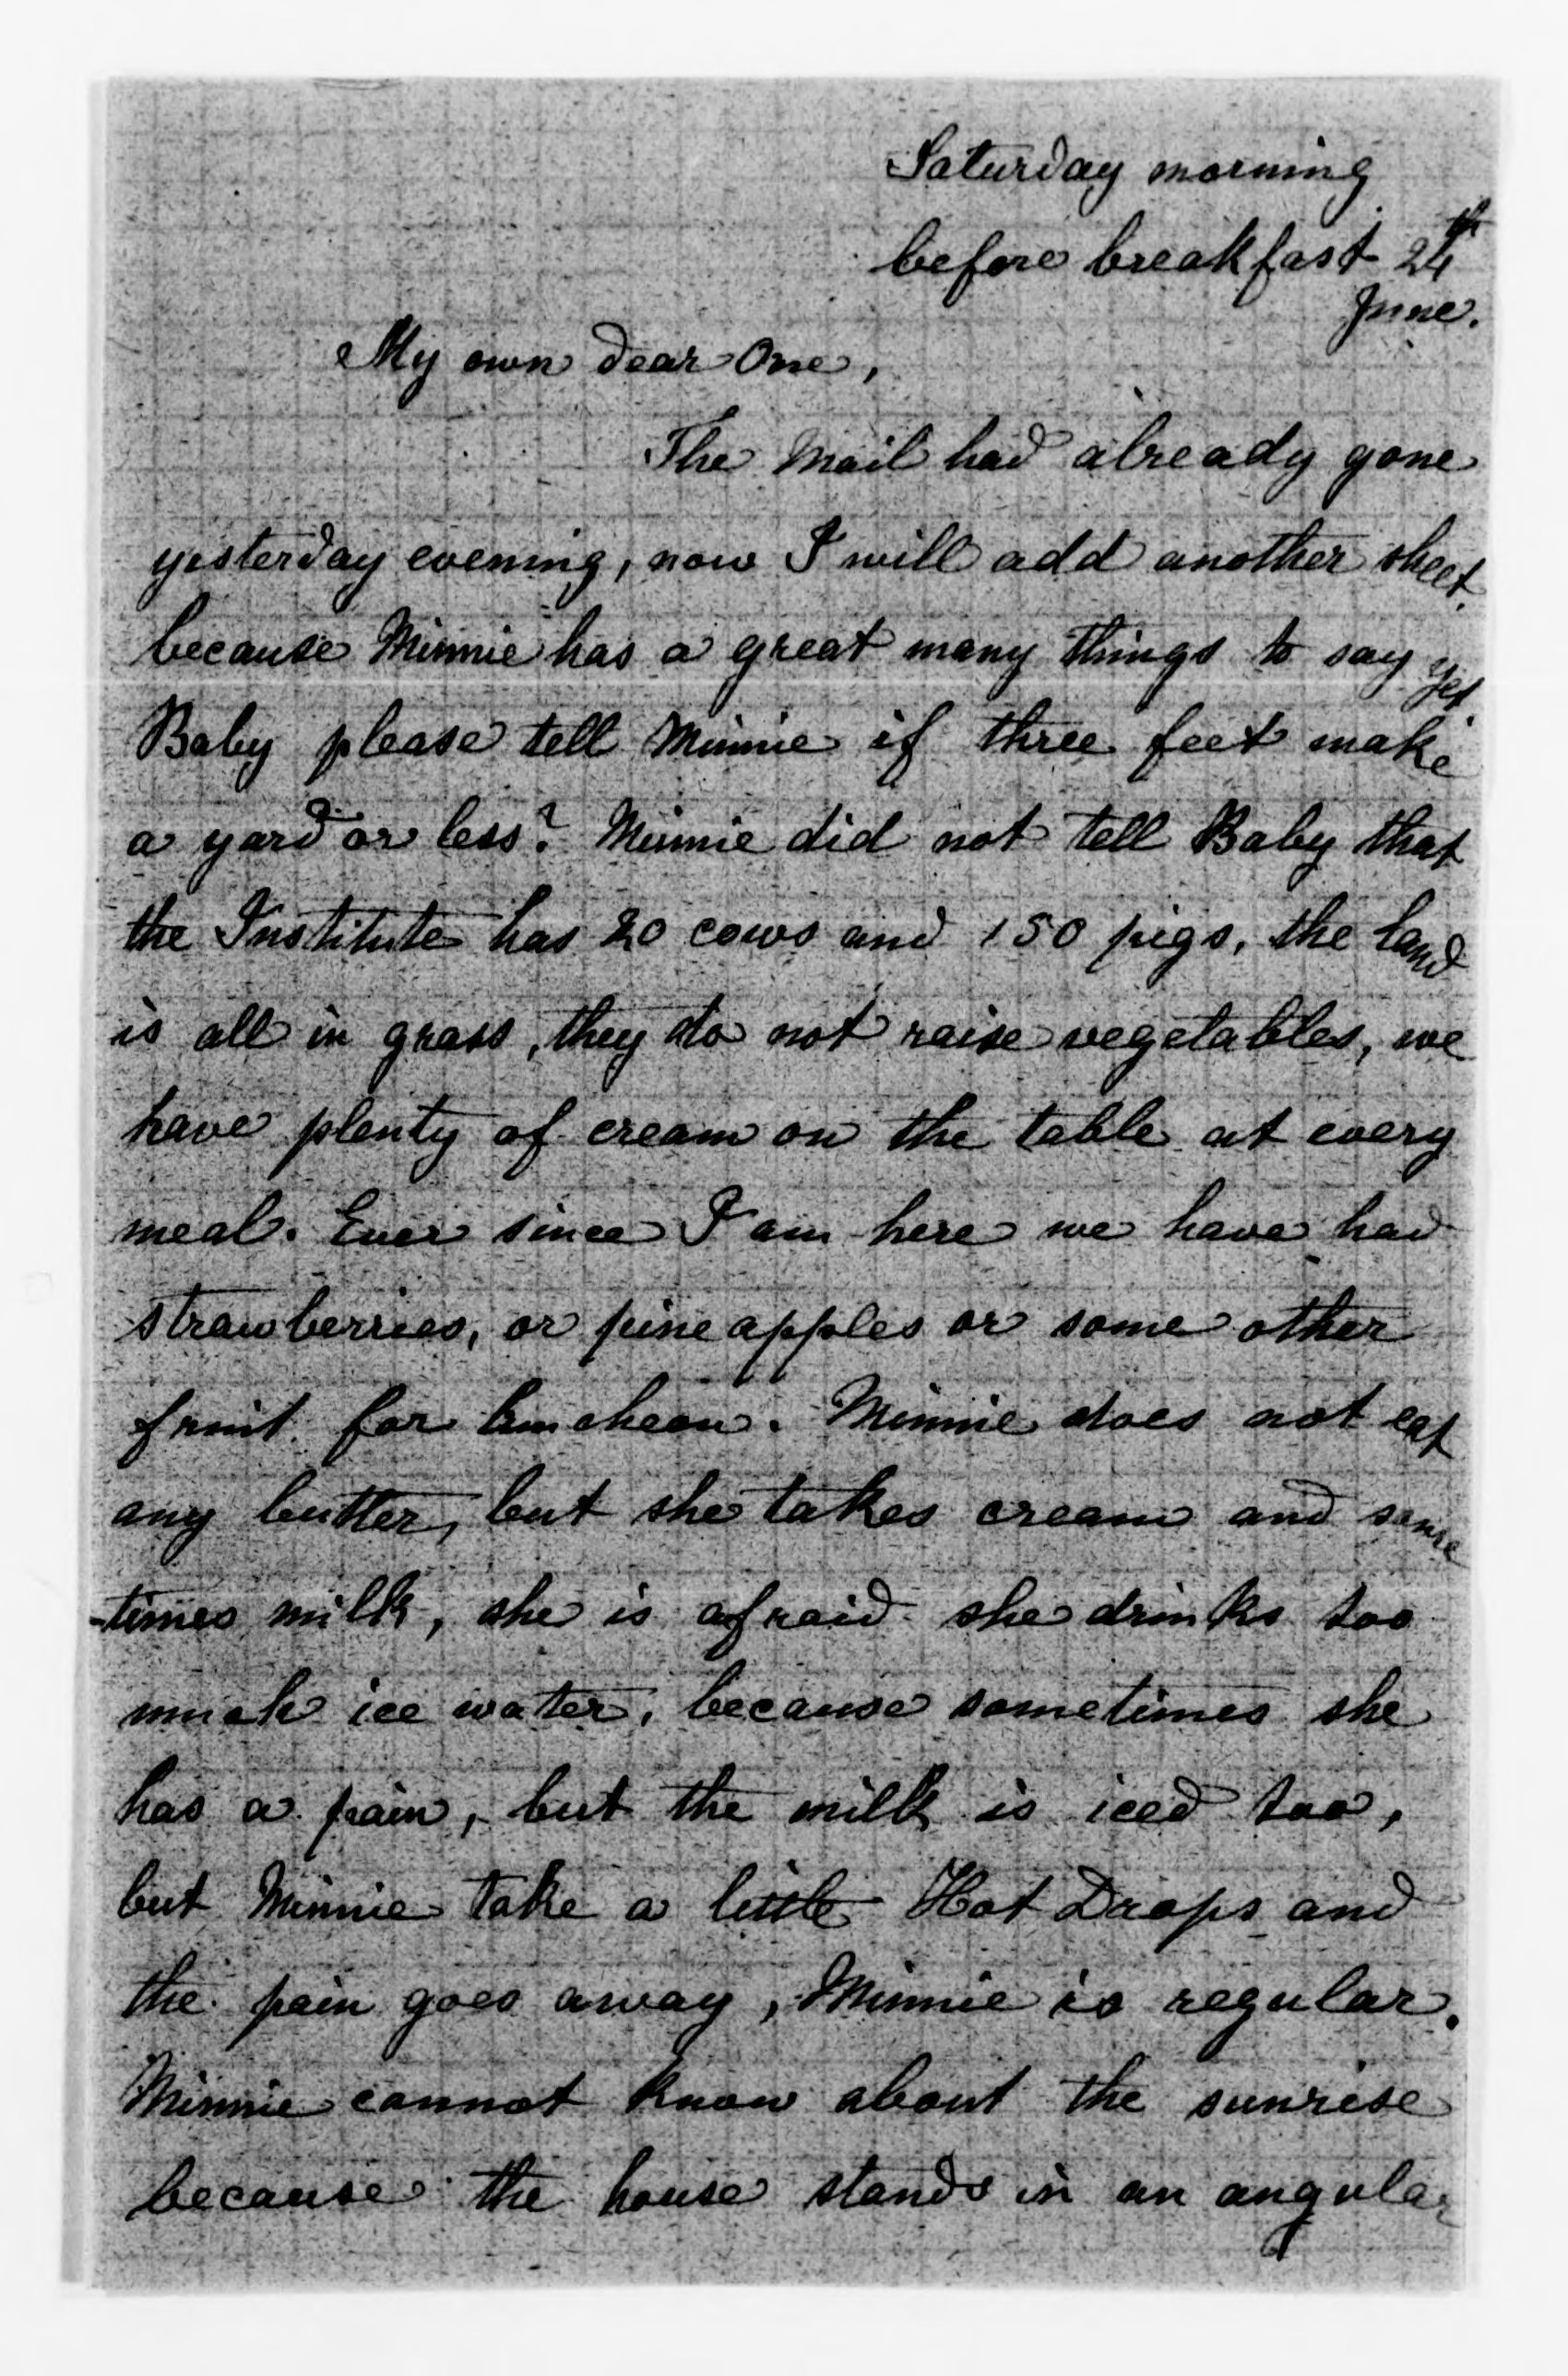 Saturday morning
before breakfast 24th
June.
My own dear One,
The mail had already gone
yesterday evening, now I will add another sheet,
because Minnie has a great many things to say yet
Baby please tell Minnie if three feet make
a yard or less? Minnie did not tell Baby that
the Institute has 20 cows and 150 pigs, the land
is all in grass, they do not raise vegetables, we
have plenty of cream on the table at every
meal. Ever since I am here we have had
strawberries, or pine apples or some other
fruit for luncheon. Minnie does not eat
any butter, but she takes cream and some
-times milk, she is afraid she drinks too
much ice water, because sometimes she
has a pain, but the milk is iced too,
but Minnie take a little Hot Drops and
the pain goes away, Minnie is regular.
Minnie cannot know about the sunrise
because the house stands in an angular